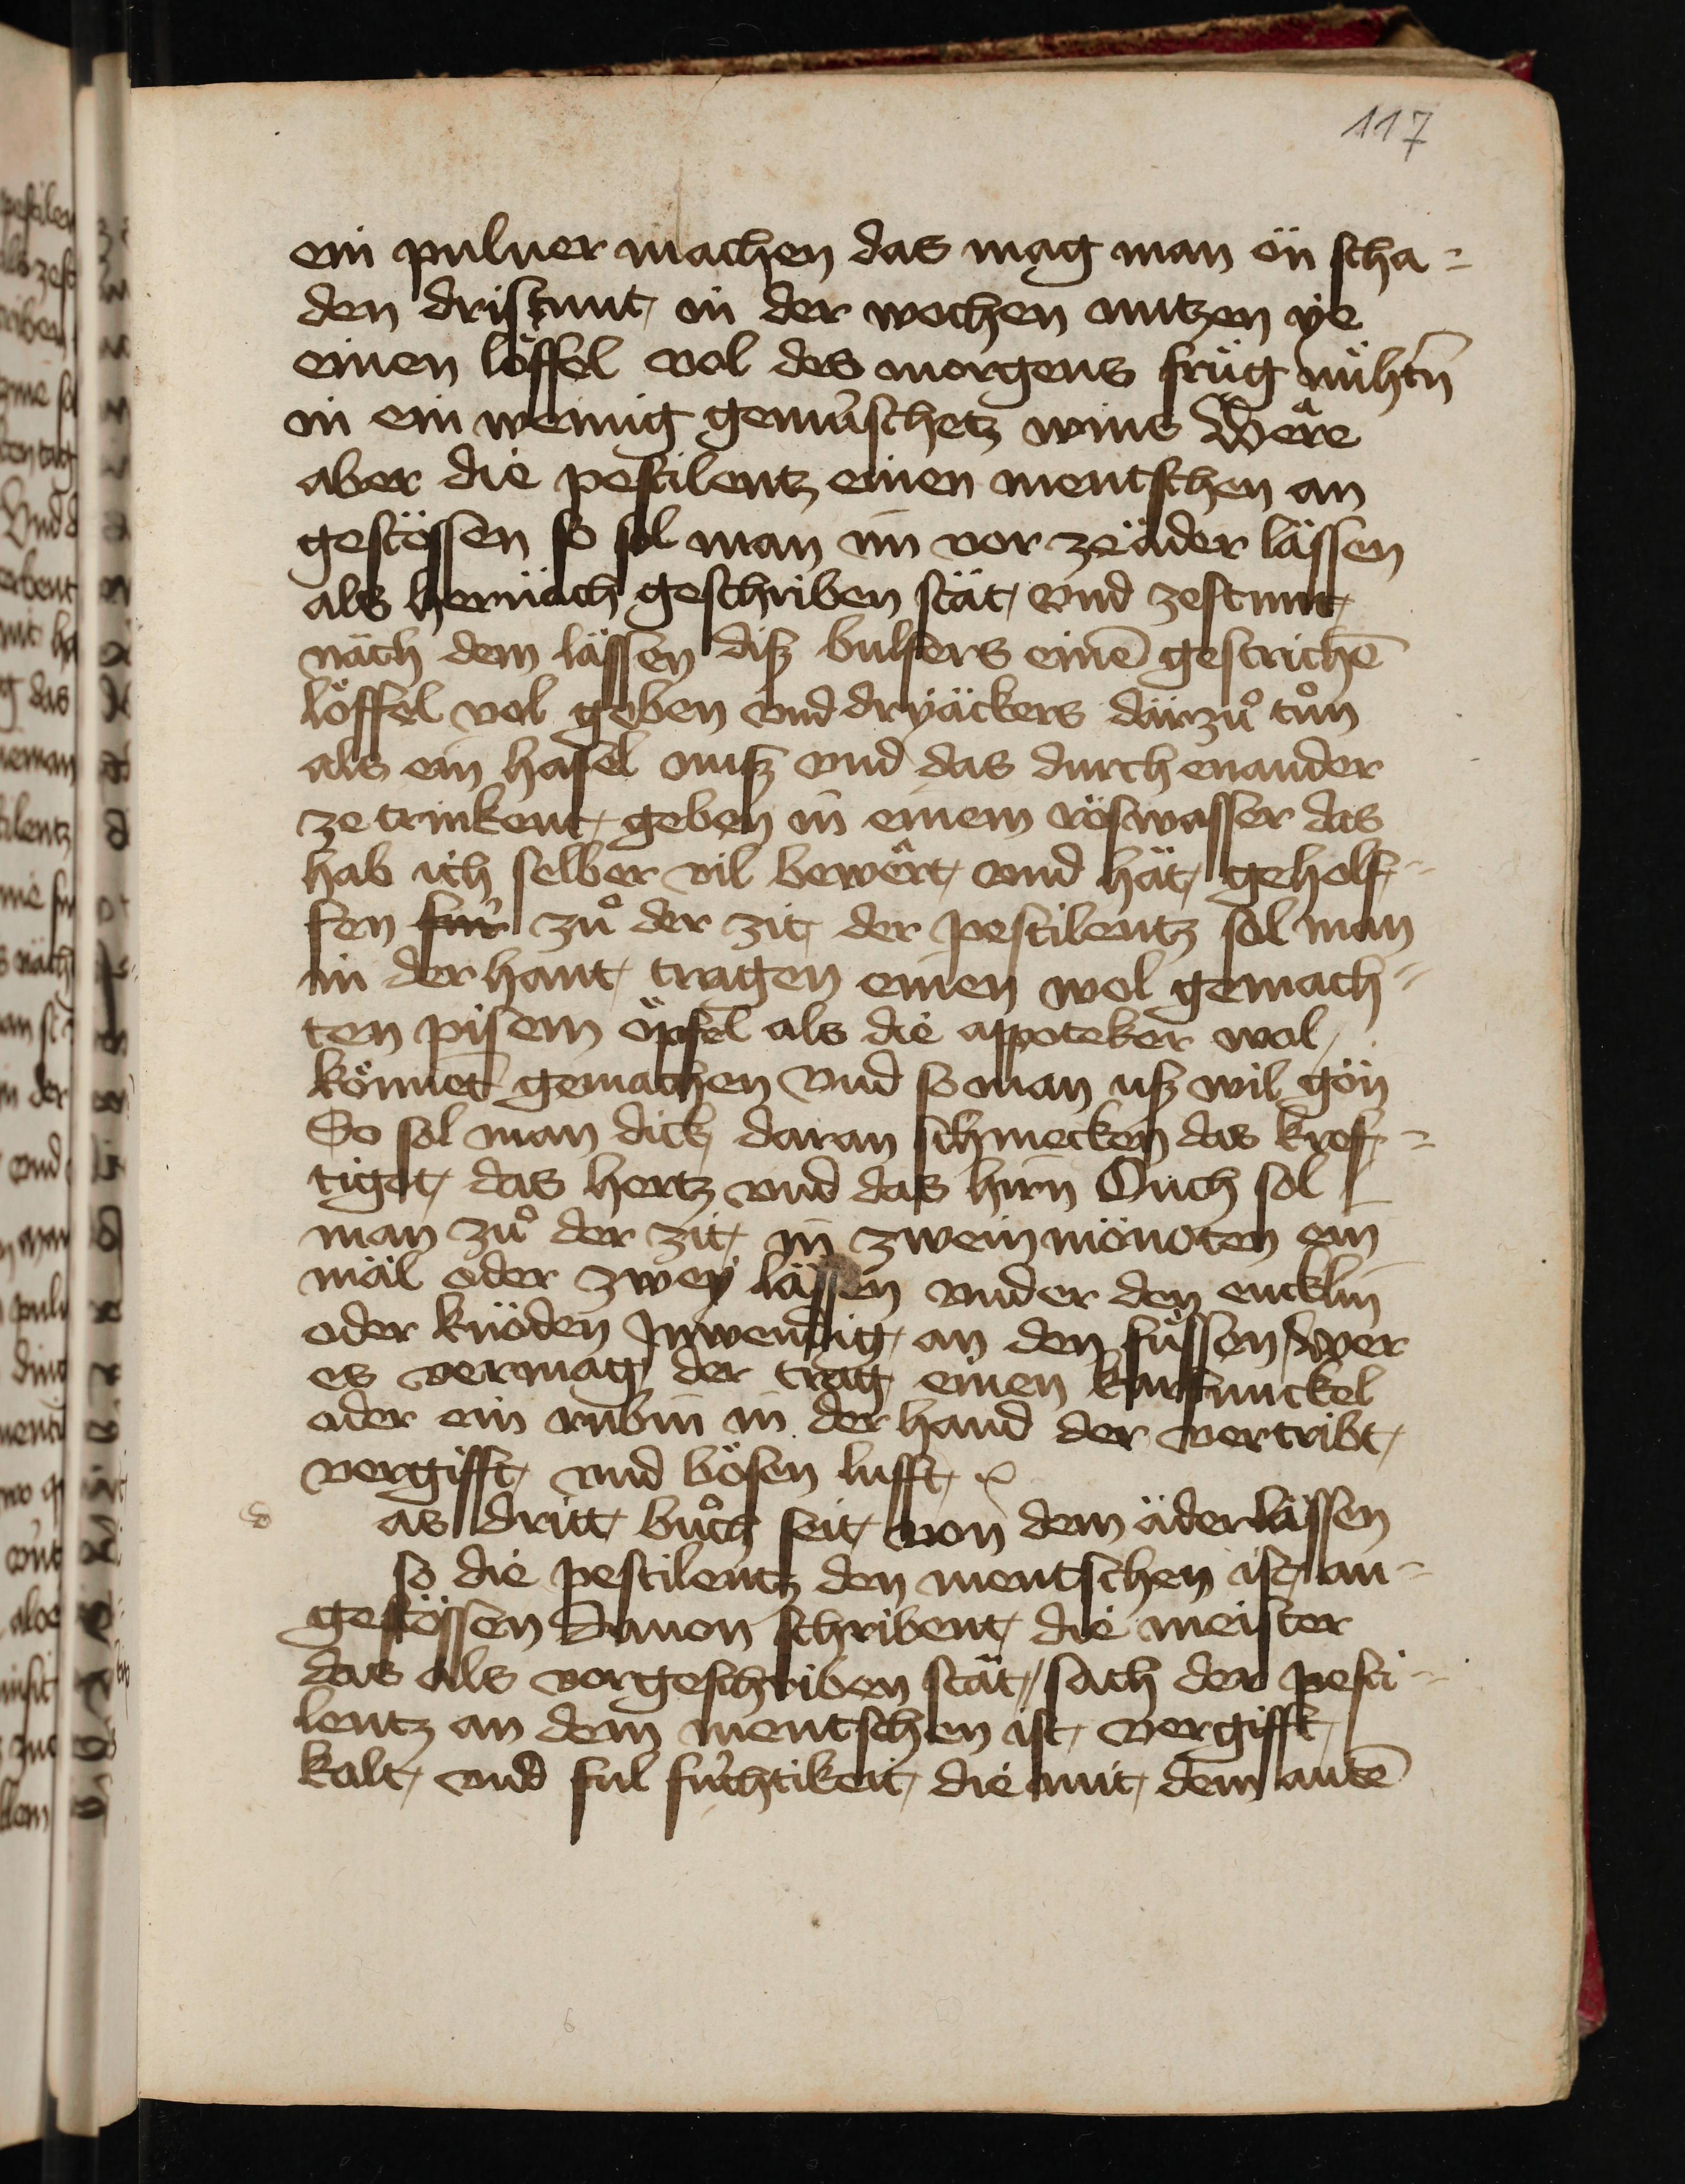 117
ein puluer machen das mag man ön scha=
den dristunt in der wochen nutzen ye
einen löffel vol des morgens früg nühtn̄
in ein wenig gemüschetz wins Wêre
aber die pestilentz einen mentschen an
gestössen so sol man im vor ze äder lässen
als hernäch geschriben stät vnd zestunt
näch dem lässen diß bulfers einē gestrichē
löffel vol geben vnd dryäckers därzuͦ tuͦn
als ein hasel nuß vnd das durch enander
ze trinkent geben in einem röswasser das
hab ich selber vil bewêrt vnd hät geholf=
fen für zuͦ der zit der pestilentz sol man
in der hant tragen einen wol gemach=
ten pisem öpfel als die appoteker wol
könnet gemachen vnd so man uß wil gön
So sol man dick daran schmecken das kref=
tiget das hertz vnd das hirn Ouch sol
man zuͦ der zit in zwein mönoten ein
mäl oder zwey lässen vnder den encklin
oder knöden Inwendig an den füssen Wer
es vermag der trag einen karfunckel
oder ein rubin in der hand der vertribt
vergifft vnd bösen lufft
d as dritt buͦch seit von dem äderlässen
so die pestilentz den mentschen ist an=
gestössen Dauon schribent die meister
das als vorgeschriben stät sach der pesti=
lentz an dem mentschen ist vergifft
kalt vnd ful füchtikeit die mit dem autē